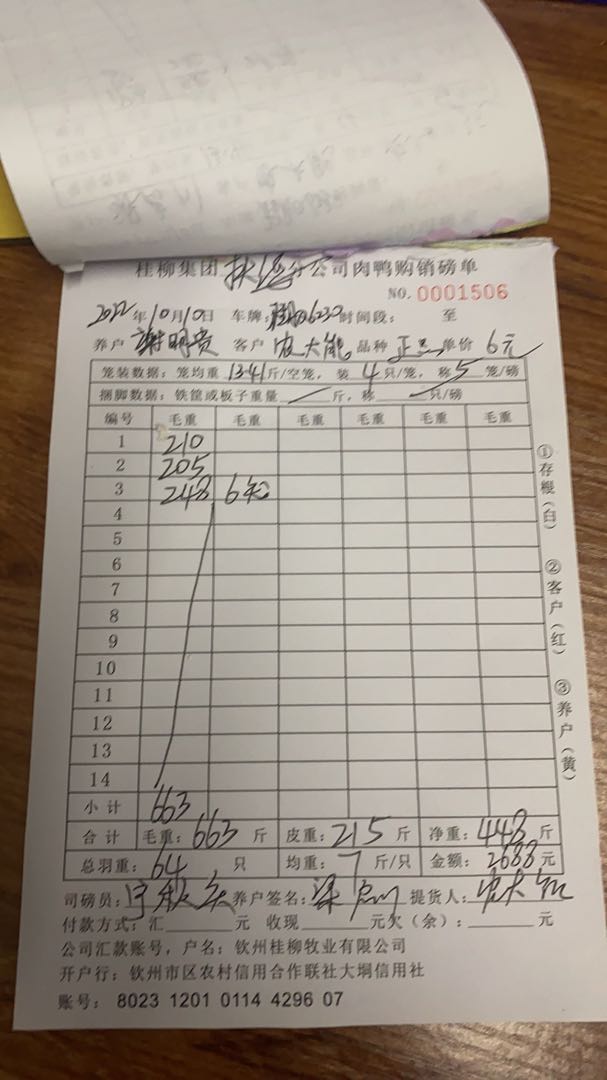 桂柳集团 分公司肉鸭购销磅单
NO. 0001506
2022年10月10日 车牌: 时间段: 至
养户 谢明贵 客户 农大能 品种 正 单价 6元
笼装数据:笼均重 13.41 斤/空笼,装 4 只/笼,称 5 笼/磅
捆脚数据:铁筐或板子重量 斤,称 只/磅
编号 毛重 毛重 毛重 毛重 毛重 毛重
1 210
2 205
3 248 6
4
5
6
7
8
9
10
11
12
13
14
小计 663
合计 毛重:663 斤 皮重:215 斤 净重:448 斤
总羽重:64 只 均重:7 斤/只 金额:2688 元
司磅员: 养户签名: 提货人:农大能
付款方式:汇 元 收现 元欠(余): 元
公司汇款账号,户名:钦州桂柳牧业有限公司
开户行:钦州市区农村信用合作联社大垌信用社
账号: 8023 1201 0114 4296 07
①存根(白)
②客户(红)
③养户(黄)